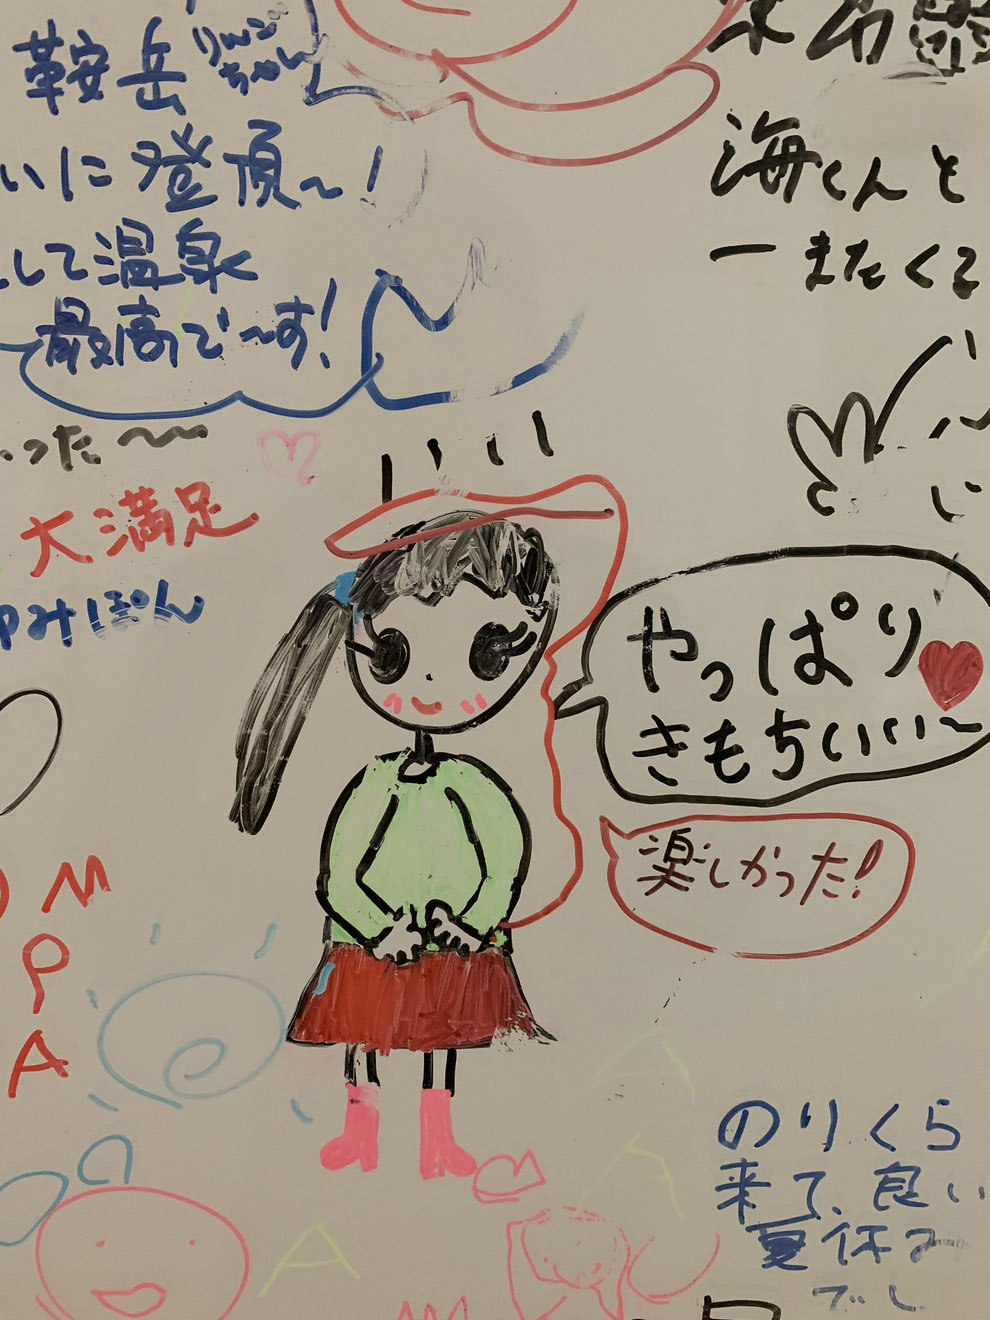 鞍岳
りんご
ちゃん
いに登頂〜!
して温泉
最高で〜す!
った〜〜
大満足
ゆみぽん
海くんと
ーまたくる
やっぱり
きもちいい〜
楽しかった!
M
P
A
のりくら
来て、良い
夏休み
でし